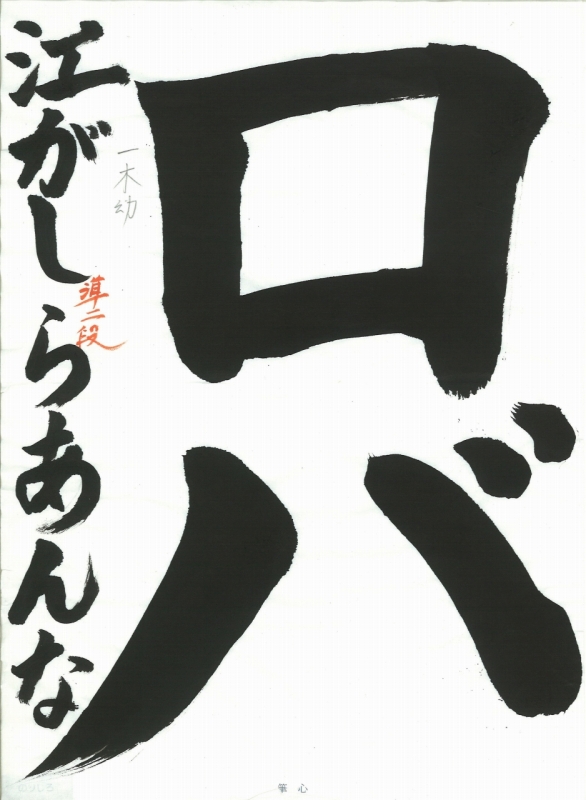 ロバ
一木幼
準二段
江がしらあんな
筆心
のりしろ